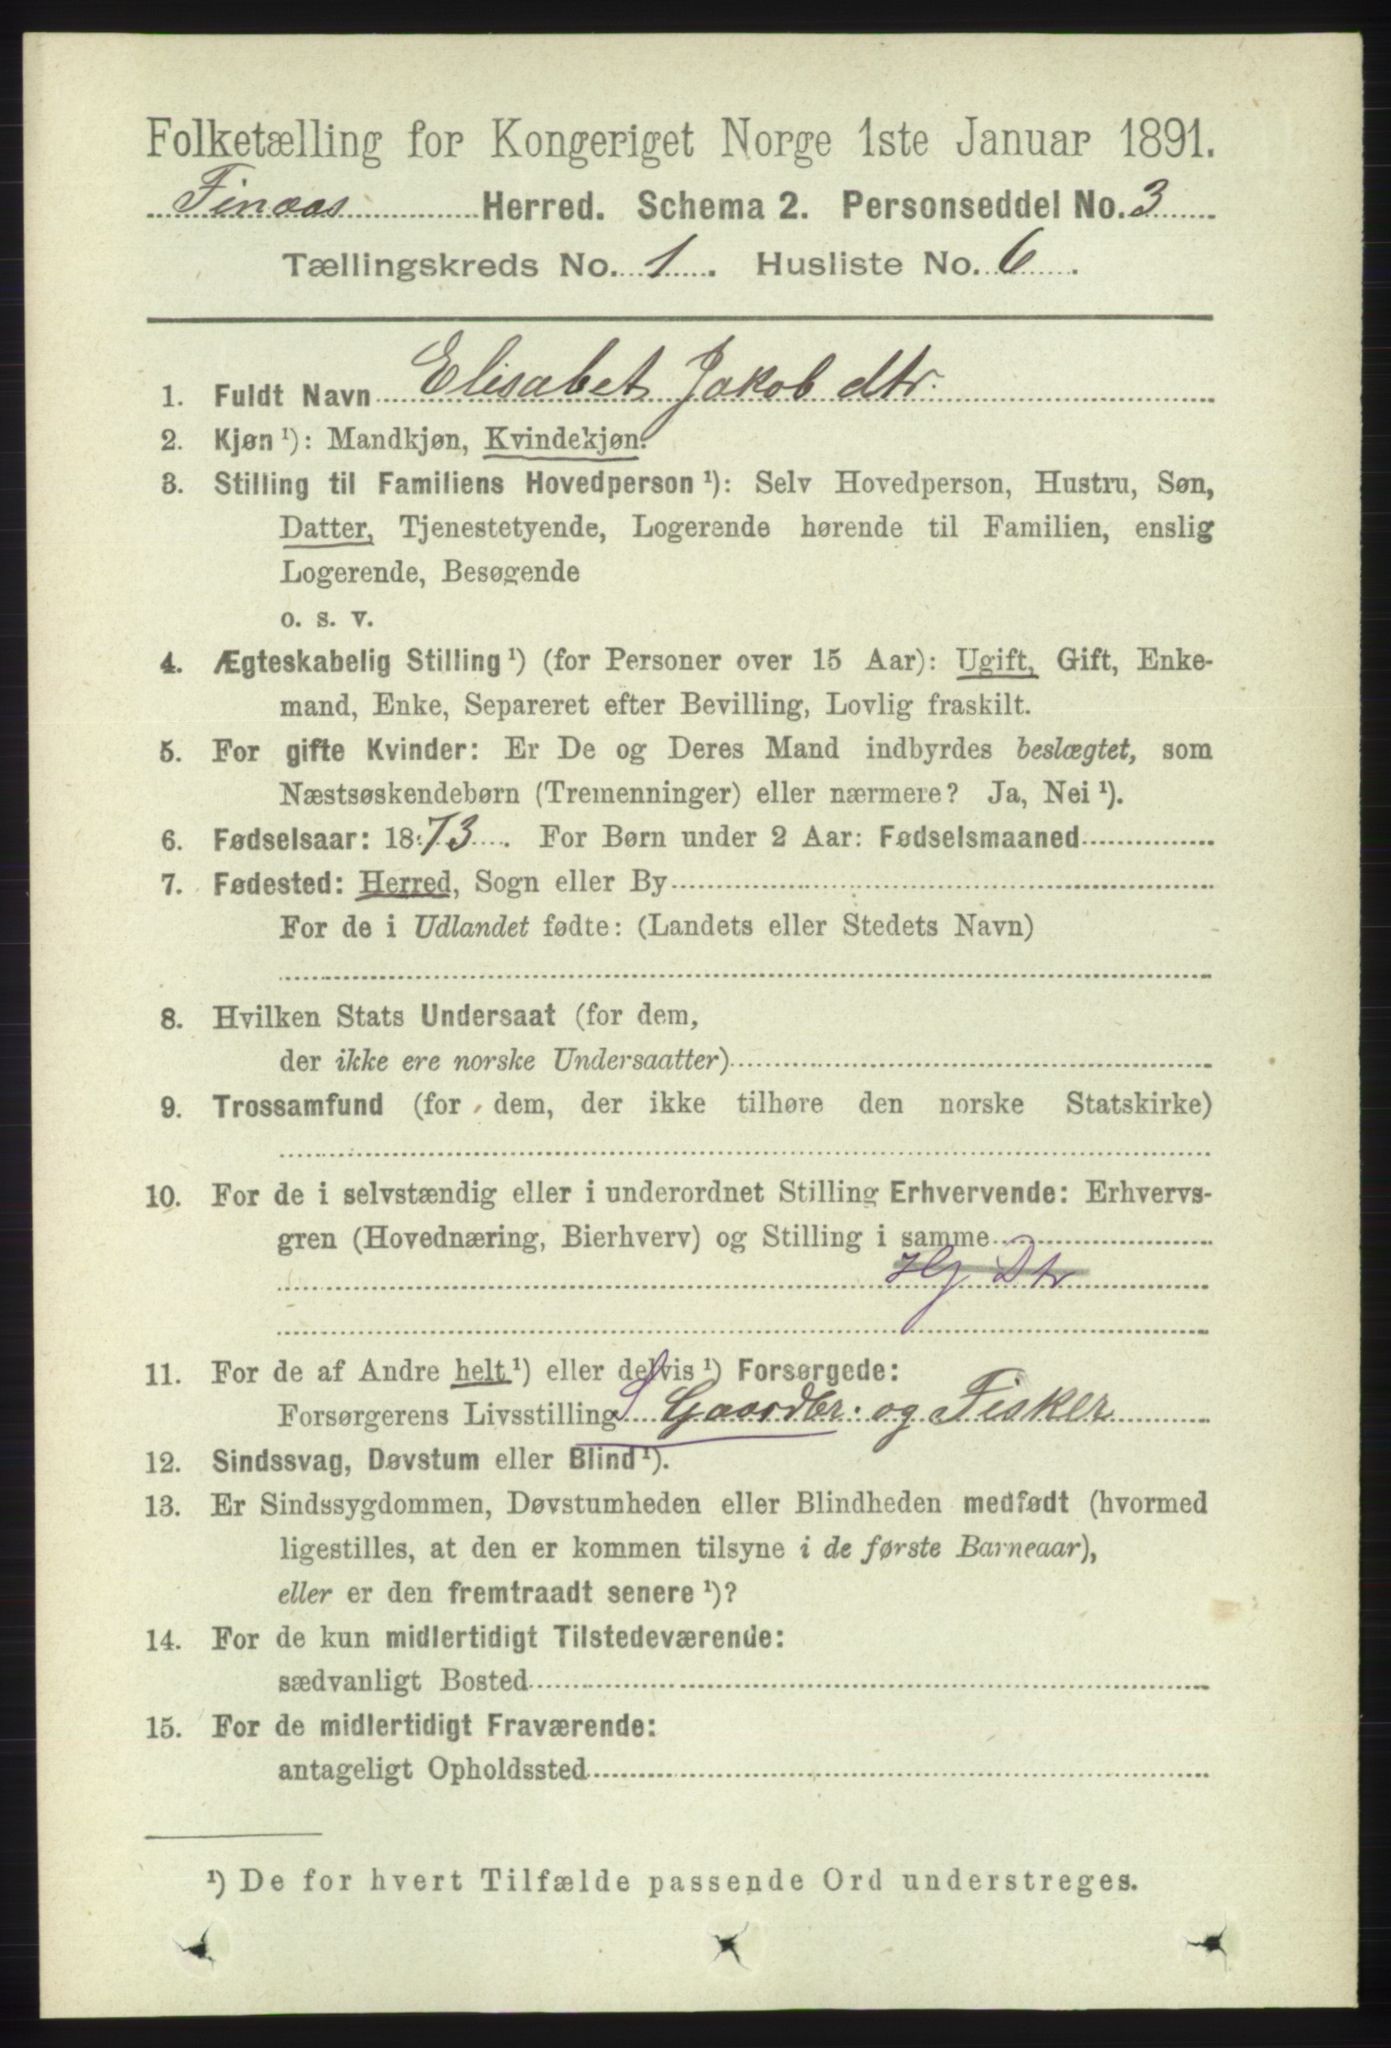 Folketælling for Kongeriget Norge 1ste Januar 1891.
Finaas Herred. Schema 2. Personseddel No. 3
Tællingskreds No. 1. Husliste No. 6.
1. Fuldt Navn Elisabet Jakob dtr.
2. Kjøn ¹): Mandkjøn, Kvindekjøn.
3. Stilling til Familiens Hovedperson ¹): Selv Hovedperson, Hustru, Søn,
Datter, Tjenestetyende, Logerende hørende til Familien, enslig
Logerende, Besøgende
o. s. v.
4. Ægteskabelig Stilling ¹) (for Personer over 15 Aar): Ugift, Gift, Enke-
mand, Enke, Separeret efter Bevilling, Lovlig fraskilt.
5. For gifte Kvinder: Er De og Deres Mand indbyrdes beslægtet, som
Næstsøskendebørn (Tremenninger) eller nærmere? Ja, Nei ¹).
6. Fødselsaar: 1873. For Børn under 2 Aar: Fødselsmaaned
7. Fødested: Herred, Sogn eller By
For de i Udlandet fødte: (Landets eller Stedets Navn)
8. Hvilken Stats Undersaat (for dem,
der ikke ere norske Undersaatter)
9. Trossamfund (for dem, der ikke tilhøre den norske Statskirke)
10. For de i selvstændig eller i underordnet Stilling Erhvervende: Erhvervs-
gren (Hovednæring, Bierhverv) og Stilling i samme
Hg Dtr
11. For de af Andre helt ¹) eller delvis ¹) Forsørgede:
Forsørgerens Livsstilling S Gaardbr. og Fisker
12. Sindssvag, Døvstum eller Blind ¹).
13. Er Sindssygdommen, Døvstumheden eller Blindheden medfødt (hvormed
ligestilles, at den er kommen tilsyne i de første Barneaar),
eller er den fremtraadt senere ¹)?
14. For de kun midlertidigt Tilstedeværende:
sædvanligt Bosted
15. For de midlertidigt Fraværende:
antageligt Opholdssted
¹) De for hvert Tilfælde passende Ord understreges.